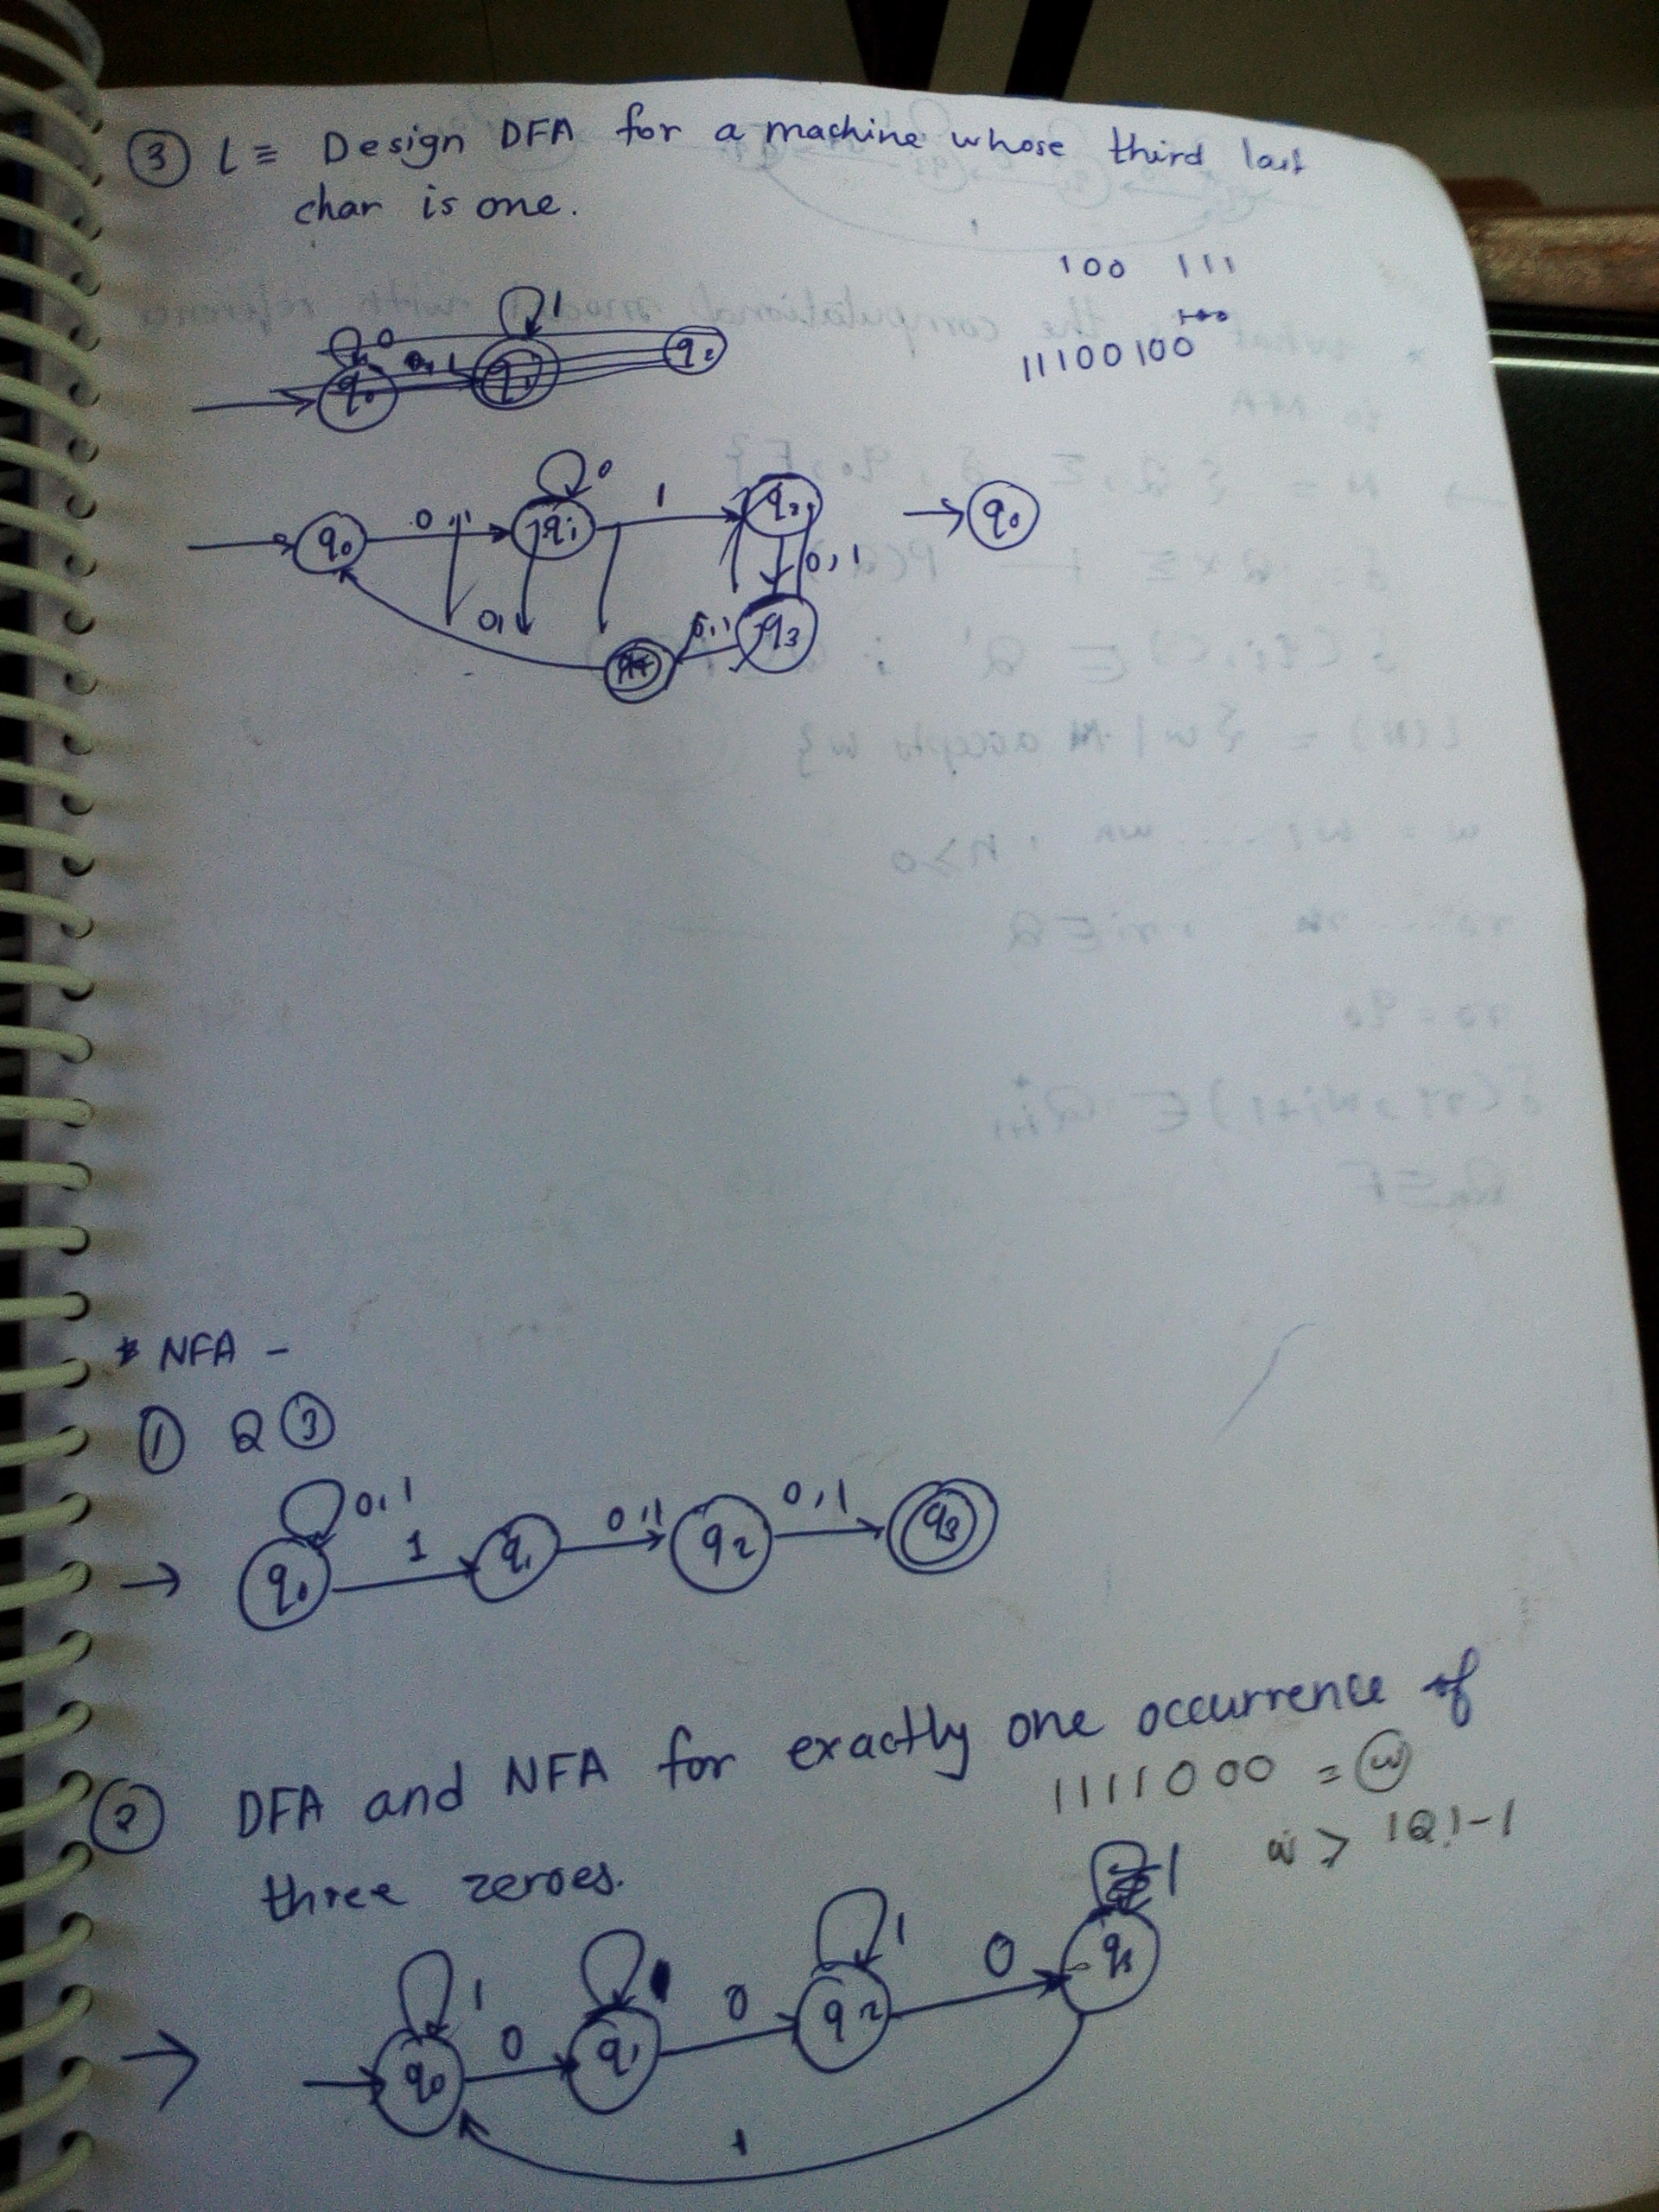 ③ L ≡ Design DFA for a machine whose third last
char is one.
100 111
11100100
0 1
q0 q1 q2
0 1
q0 0,1 q1 1 q2 → q0
0,1
0, 0,1 q3
* NFA -
① Q ③
0,1 1 0,1 0,1
→ q0 q1 q2 q3
② DFA and NFA for exactly one occurrence of
three zeroes.
1111000 = w
w > |Q|-1
1 1 1
→ q0 0 q1 0 q2 0 q3
1